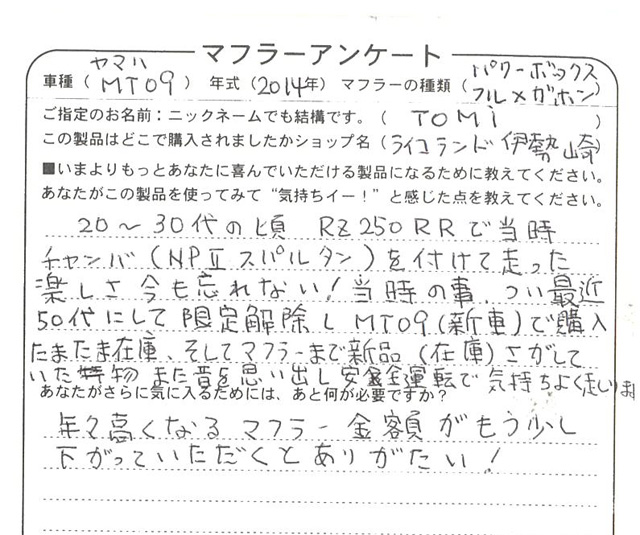 マフラーアンケート
ヤマハ
車種（MT09） 年式（2014年） マフラーの種類（パワーボックス
フルメガホン）
ご指定のお名前：ニックネームでも結構です。（ TOMI ）
この製品はどこで購入されましたかショップ名（ライコランド伊勢崎）
■いまよりもっとあなたに喜んでいただける製品になるために教えてください。
あなたがこの製品を使ってみて“気持ちイー！”と感じた点を教えてください。
20～30代の頃 RZ250RRで当時
チャンバ（NPⅡスパルタン）を付けて走った
楽しさ今も忘れない！当時の事、つい最近
50代にして限定解除しMT09（新車）で購入
たまたま在庫、そしてマフラーまで新品（在庫）さがして
いた 物 また昔を思い出し安全運転で気持ちよく走いま
あなたがさらに気に入るためには、あと何が必要ですか？
年々高くなるマフラー金額がもう少し
下がっていただくとありがたい！